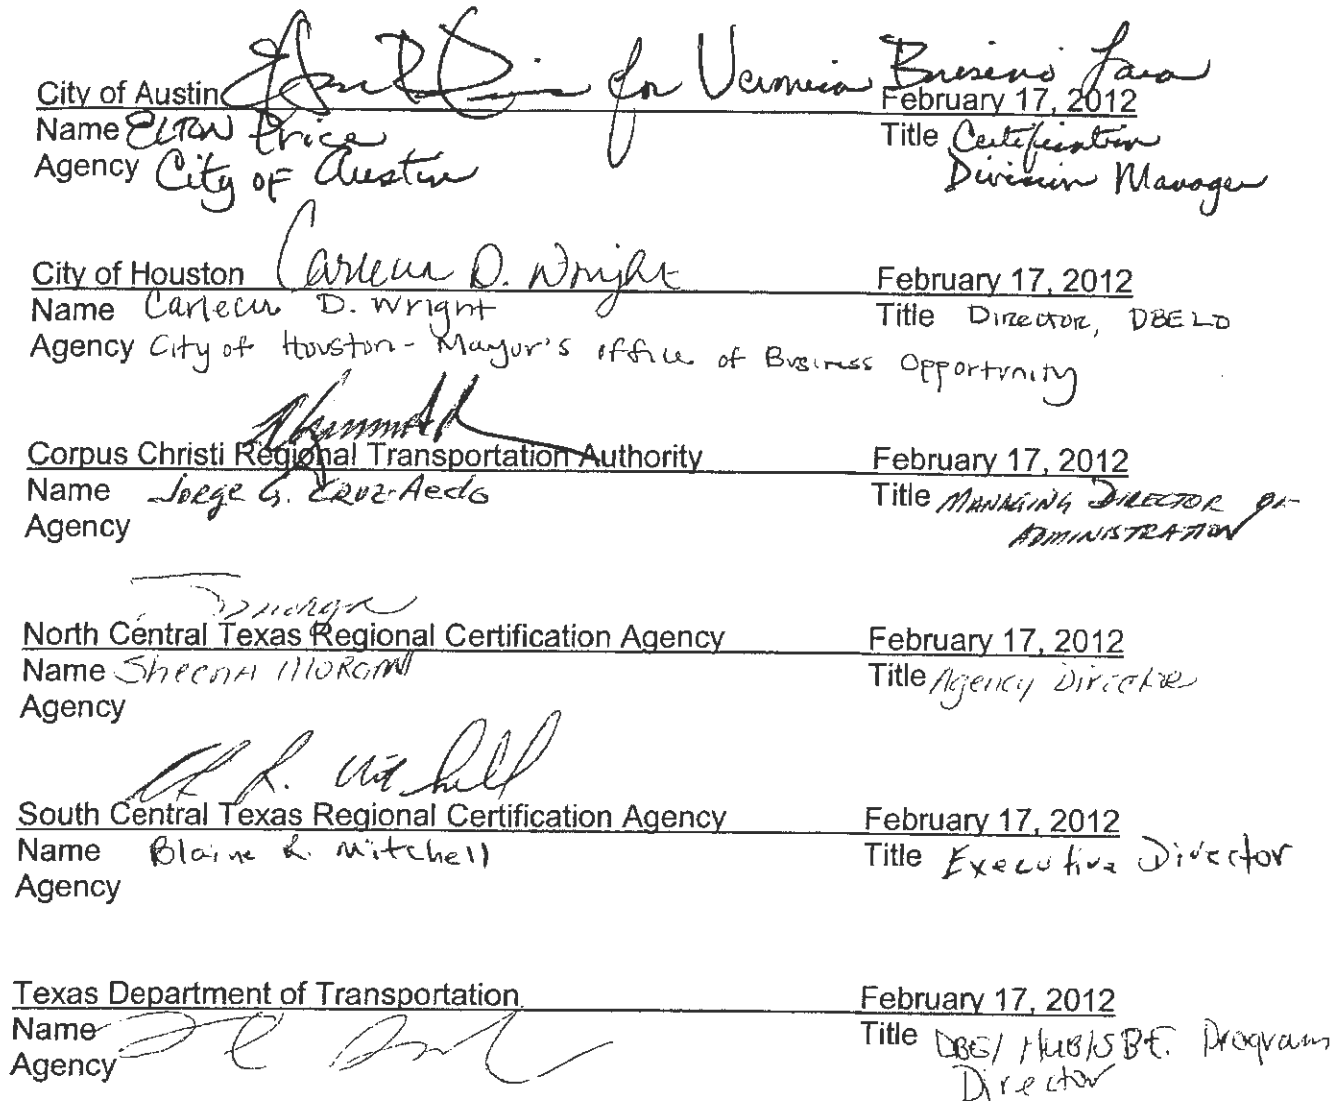 City of Austin for Veronica Briseño Lara February 17, 2012
Name Elton Price Title Certification
Agency City of Austin Division Manager
City of Houston Carlecia D. Wright February 17, 2012
Name Carlecia D. Wright Title Director, DBELO
Agency City of Houston - Mayor's Office of Business Opportunity
Corpus Christi Regional Transportation Authority February 17, 2012
Name Jorge G. Cruz-Aedo Title Managing Director of
Agency Administration
North Central Texas Regional Certification Agency February 17, 2012
Name Sheena Morgan Title Agency Director
Agency
South Central Texas Regional Certification Agency February 17, 2012
Name Blaine R. Mitchell Title Executive Director
Agency
Texas Department of Transportation February 17, 2012
Name Title DBE/HUB/SBE Program
Agency Director